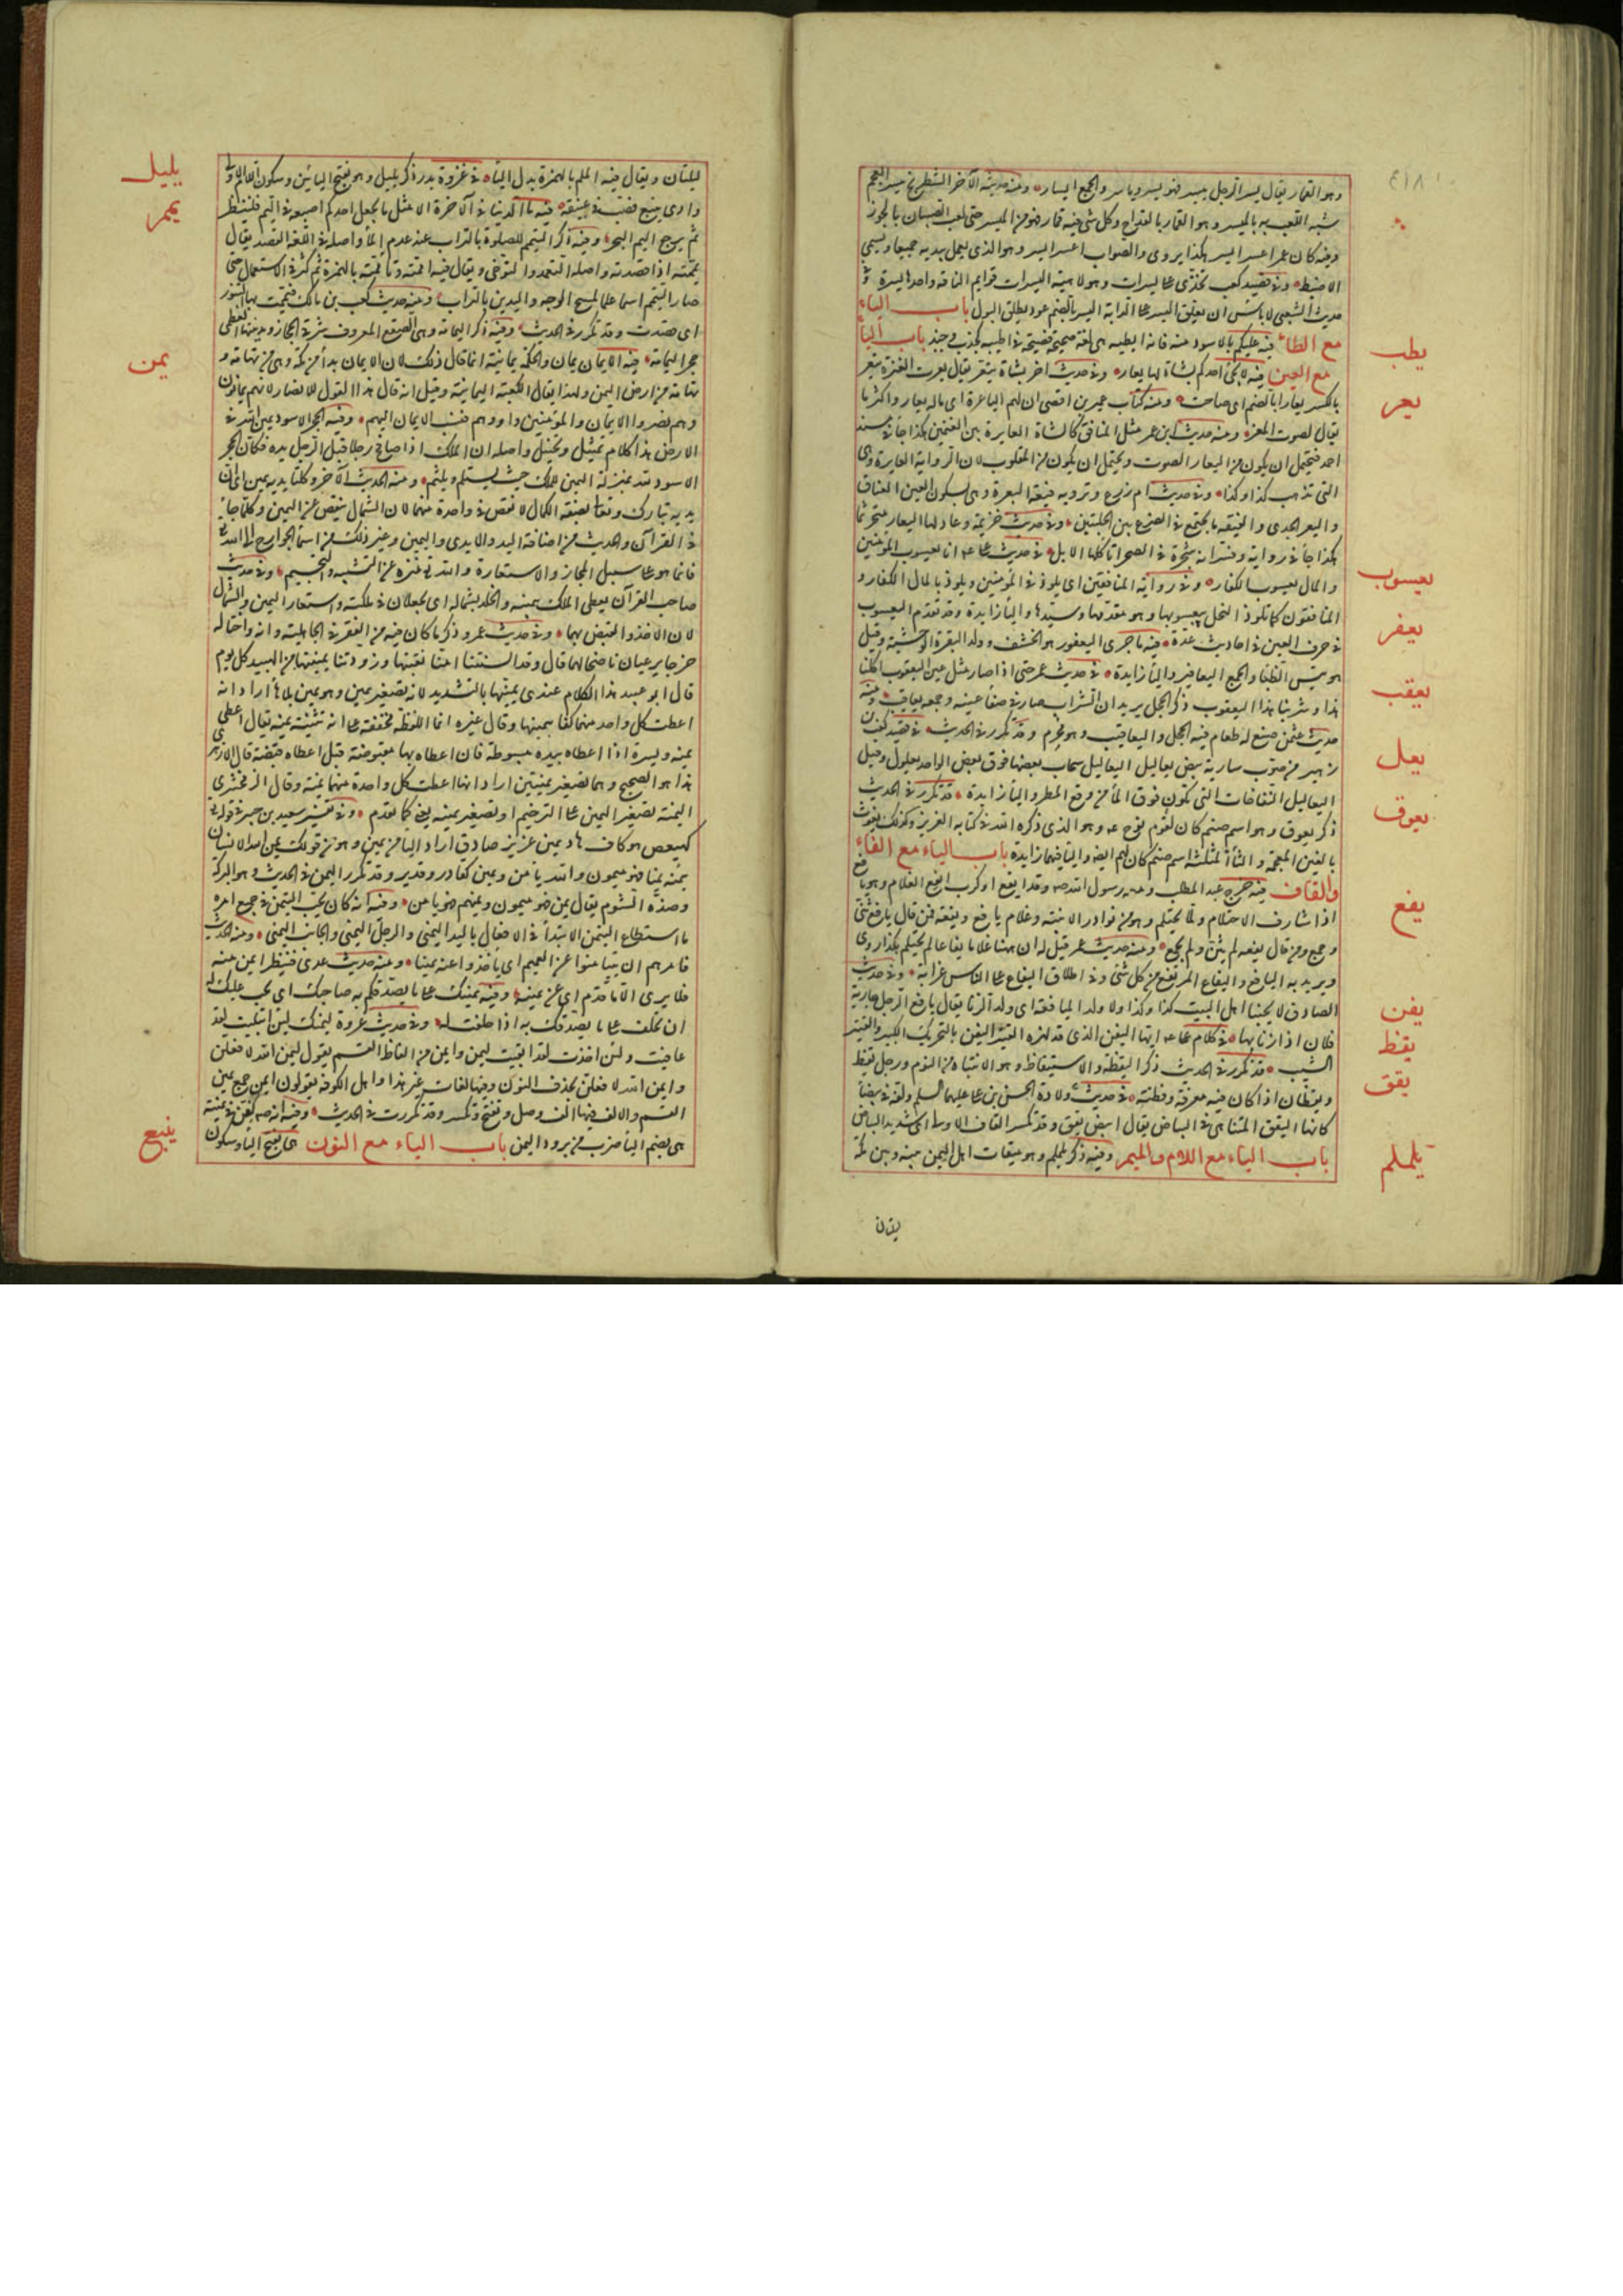 وهو القمار يقال يسر الرجل ييسر فهو يسر وياسر والجمع ايسار ومنه حديثه الآخر الشطرنج ميسر العجم
شبه اللعب به بالميسر وهو القمار بالقداح وكل شئ فيه قمار فهو من الميسر حتى لعب الصبيان بالجوز
وفيه كان عمر اعسر ايسر هكذا يروى والصواب اعسر يسر وهو الذى يعمل بيديه جميعا ويسمى
الاضبط وفى قصيد كعب تخدى على يسرات وهى لاهية اليسرات قوايم الناقة واحدها يسرة وفى
حديث الشعبى لا باس ان يعلق اليسر على الدابة اليسر بالضم عود يطلق البول باب الياء
مع الطاء فيه عليكم بالاسود منه فانه ايطبه هى لغة صحيحة فصيحة فى اطيبه كجذب وجبذ باب الياء
مع العين فيه لا يجئ احدكم بشاة لها يعار وفى حديث آخر بشاة تيعر يقال يعرت العنز تيعر
بالكسر يعارا بالضم اى صاحت ومنه كتاب عمير بن افصى ان لهم الياعرة اى ما له يعار واكثر ما
يقال لصوت المعز ومنه حديث ابن عمر مثل المنافق كالشاة الياعرة بين الغنمين هكذا جاء فى مسند
احمد فيحتمل ان يكون من اليعار الصوت ويحتمل ان يكون من المقلوب لان الرواية العايرة وهى
التى تذهب كذا وكذا وفى حديث ام زرع وترويه فيقة اليعرة وهى بسكون العين العناق
واليعر الجدى والفيقة ما يجتمع فى الضرع بين الحلبتين وفى حديث خزيمة وعاد لها اليعار مجرنثما
هكذا جاء فى رواية وفسر انه شجرة فى الصحراء تاكلها الابل فى حديث على انا يعسوب المؤمنين
والمال يعسوب الكفار وفى رواية المنافقين اى يلوذ بى المؤمنين ويلوذ بالمال الكفار و
المنافقون كما تلوذ النحل بيعسوبها وهو مقدمها وسيدها والياء زايدة وقد تقدم اليعسوب
فى حرف العين فى احاديث عدة فيه ما جرى اليعفور هو الخشف وولد البقرة الوحشية وقيل
هو تيس الظباء والجمع اليعافير والياء زايدة فى حديث عمر حتى اذا صار مثل عين اليعقوب اكلنا
هذا وشربنا هذا اليعقوب ذكر الحجل يريد ان الشراب صار فى صفاء عينه وجمعه يعاقيب ومنه
حديث عثمن صنع له طعام فيه الحجل واليعاقيب وهو محرم وقد تكرر فى الحديث فى قصيد كعب
من صوب سارية بيض يعاليل اليعاليل سحاب بعضها فوق بعض الواحد يعلول وقيل
اليعاليل النفاخات التى تكون فوق الماء من وقع المطر والياء زايدة قد تكرر فى الحديث
ذكر يعوق وهو اسم صنم كان لقوم نوح وهو الذى ذكره الله فى كتابه العزيز وكذلك يغوث
بالغين المعجمة والثاء المثلثة اسم صنم كان لهم ايضا والياء فيهما زايدة باب الياء مع الفاء
والقاف فيه خرج عبد المطلب ومعه رسول الله وقد ايفع او كرب ايفع الغلام وهو يافع
اذا شارف الاحتلام ولما يحتلم وهو من نوادر الابنية وغلام يافع ويفعة فمن قال يافع ثنى
وجمع ومن قال يفعة لم يثن ولم يجمع ومنه حديث عمر قيل له ان ههنا غلاما يفاعا لم يحتلم هكذا روى
ويريد به اليافع واليفاع المرتفع من كل شئ وفى اطلاق اليفاع على الناس غرابة وفى حديث
الصادق لا يحبنا اهل البيت كذا وكذا ولا ولد الميافعة اى ولد الزنا يقال يافع الرجل جارية
فلان اذا زنا بها فى كلام على ايها اليفن الذى قد لهزه القتير اليفن بالتحريك الكبير والقتير
الشيب قد تكرر فى الحديث ذكر اليقظة والاستيقاظ وهو الانتباه من النوم ورجل يقظ
ويقظان اذا كان فيه معرفة وفطنة فى حديث ولادة الحسن بن على عليهما السلم ولفه فى بيضاء
كانها اليقق المتناهى فى البياض يقال ابيض يقق وقد تكسر القاف الاولى اى شديد البياض
باب الياء مع اللام والميم وفيه ذكر يلملم وهو ميقات اهل اليمن بينه وبين مكة
يطب
يعر
يعسوب
يعفر
يعقب
يعل
يعوق
يفع
يفن
يقظ
يقق
يلملم
ليلتان
ليلتان ويقال فيه الملم بالهمزة بدل الياء فى غزوة بدر ذكر يليل وهو بفتح اليائين وسكون اللام الاولى
وادى ينبع يصب فى غيقة فيه ما الدنيا فى الآخرة الا مثل ما يجعل احدكم اصبعه فى اليم فلينظر
بم يرجع اليم البحر وفيه ذكر التيمم للصلوة بالتراب عند عدم الماء واصله فى اللغة القصد يقال
يممته اذا قصدته واصله التعمد والتوخى ويقال فيه اممته وتاممته بالهمزة ثم كثر فى الاستعمال حتى
صار التيمم اسما علما لمسح الوجه واليدين بالتراب ومنه حديث كعب بن مالك فتيممت بها التنور
اى قصدت وقد تكرر فى الحديث وفيه ذكر اليمامة وهى الصقع المعروف شرقى الحجاز ومدينتها العظمى
حجر اليمامة فيه الايمان يمان والحكمة يمانية انما قال ذلك لان الايمان بدأ من مكة وهى من تهامة و
تهامة من ارض اليمن ولهذا يقال الكعبة اليمانية وقيل انه قال هذا القول للانصار لانهم يمانون
وهم نصروا الايمان والمؤمنين واووهم فنسب الايمان اليهم وفيه الحجر الاسود يمين الله فى
الارض هذا كلام تمثيل وتخييل واصله ان الملك اذا صافح رجلا قبل الرجل يده فكان الحجر
الاسود لله بمنزلة اليمين للملك حيث يستلم ويلثم ومنه الحديث الآخر وكلتا يديه يمين اى ان
يديه تبارك وتعالى بصفة الكمال لا نقص فى واحدة منهما لان الشمال تنقص عن اليمين وكلما جاء
فى القرآن والحديث من اضافة اليد والايدى واليمين وغير ذلك من اسماء الجوارح الى الله
فانما هو على سبيل المجاز والاستعارة والله منزه عن التشبيه والتجسيم وفى حديث
صاحب القرآن يعطى الملك بيمينه والخلد بشماله اى يجعلان فى ملكته واستعار اليمين والشمال
لان الاخذ والقبض بهما وفى حديث عمر وذكر ما كان فيه من الفقر فى الجاهلية وانه واختا له
خرجا يرعيان ناضحا لهما قال وقد البستنا امنا نقبتها وزودتنا يمينتيها من الهبيد كل يوم
قال ابو عبيد هذا الكلام عندى يمينيها بالتشديد لانه تصغير يمين وهو يمين بلا هاء اراد انه
اعطت كل واحد منهما كفا بيمينها وقال غيره انما اللفظة مخففة على انه تثنية يمنة يقال اعطى
يمنة ويسرة اذا اعطاه بيده مبسوطة فان اعطاه بها مقبوضة قيل اعطاه قبضة قال الازهرى
هذا هو الصحيح وهما تصغير يمنتين اراد انها اعطت كل واحدة منهما يمنة وقال الزمخشرى
اليمينة تصغير اليمين على الترخيم او تصغير يمنة يعنى كما تقدم وفى تفسير سعيد بن جبير فى قوله
كهيعص هو كاف هاد يمين عزيز صادق اراد الياء من يمين وهو من قولك يمن الله الانسان
يمنه يمنا فهو ميمون والله يامن ويمين كقادر وقدير وقد تكرر اليمن فى الحديث وهو البركة
وضده الشوم يقال يمن فهو ميمون ويمنهم فهو يامن وفيه انه كان يحب التيمن فى جميع امره
ما استطاع التيمن الابتداء فى الافعال باليد اليمنى والرجل اليمنى والجانب اليمنى ومنه الحديث
فامرهم ان يتيامنوا عن الغميم اى ياخذوا عنه يمينا ومنه حديث عدى فينظر ايمن منه
فلا يرى الا ما قدم اى عن يمينه وفيه يمينك على ما يصدقك به صاحبك اى يجب عليك له
ان تحلف على ما يصدقك به اذا حلفت له وفى حديث عروة ليمنك لئن ابتليت لقد
عافيت ولئن اخذت لقد ابقيت ليمن وايمن من الفاظ القسم يقول ليمن الله لافعلن
وايمن الله لافعلن بحذف النون وفيها لغات غير هذا واهل الكوفة يقولون ايمن جمع يمين
القسم والالف فيها الف وصل وتفتح وتكسر وقد تكررت فى الحديث وفيه انه كفن فى يمنة
هى بضم الياء ضرب من برود اليمن باب الياء مع النون هى بفتح الياء وسكون
يليل
يمم
يمن
ينبع